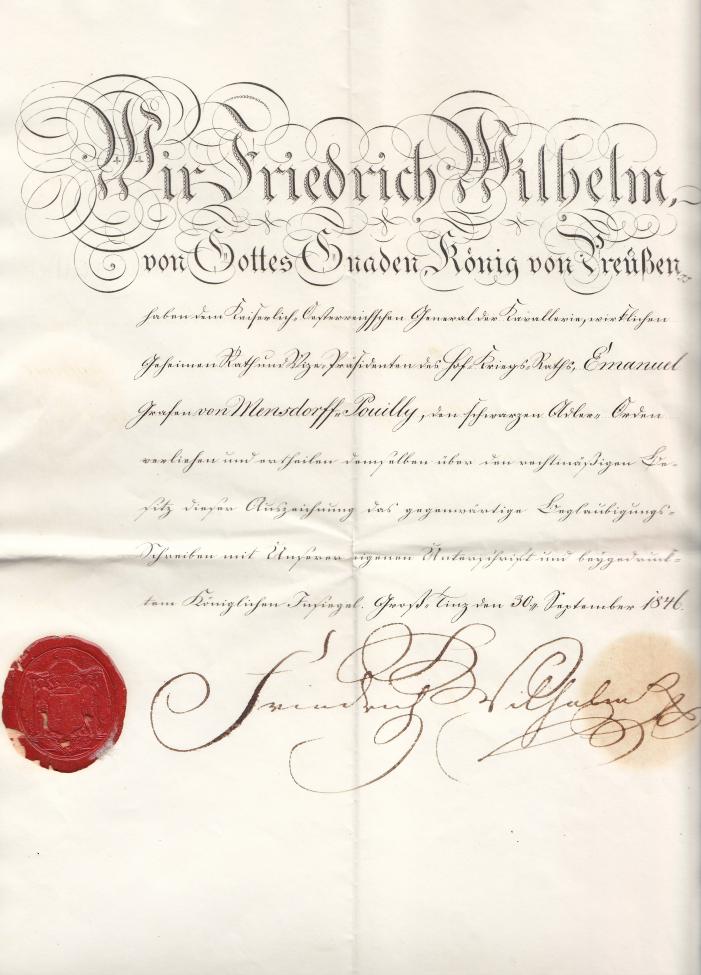 Wir Friedrich Wilhelm,
von Gottes Gnaden König von Preußen
haben dem Kaiserlich-Oesterreichschen General der Kavallerie, wirklichen
Geheimen Rath und Vize-Präsidenten des Hof-Kriegs-Raths, Emanuel
Grafen von Mensdorff-Pouilly, den schwarzen Adler-Orden
verliehen und ertheilen demselben über den rechtmäßigen Be-
sitz dieser Auszeichnung das gegenwärtige Beglaubigungs-
Schreiben mit Unserer eigenen Unterschrift und beygedruck-
tem Königlichen Insiegel. Groß-Tinz den 30n September 1846.
Friedrich Wilhelm